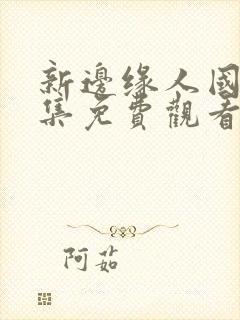 新邊缘人國
集免費觀看
阿茹